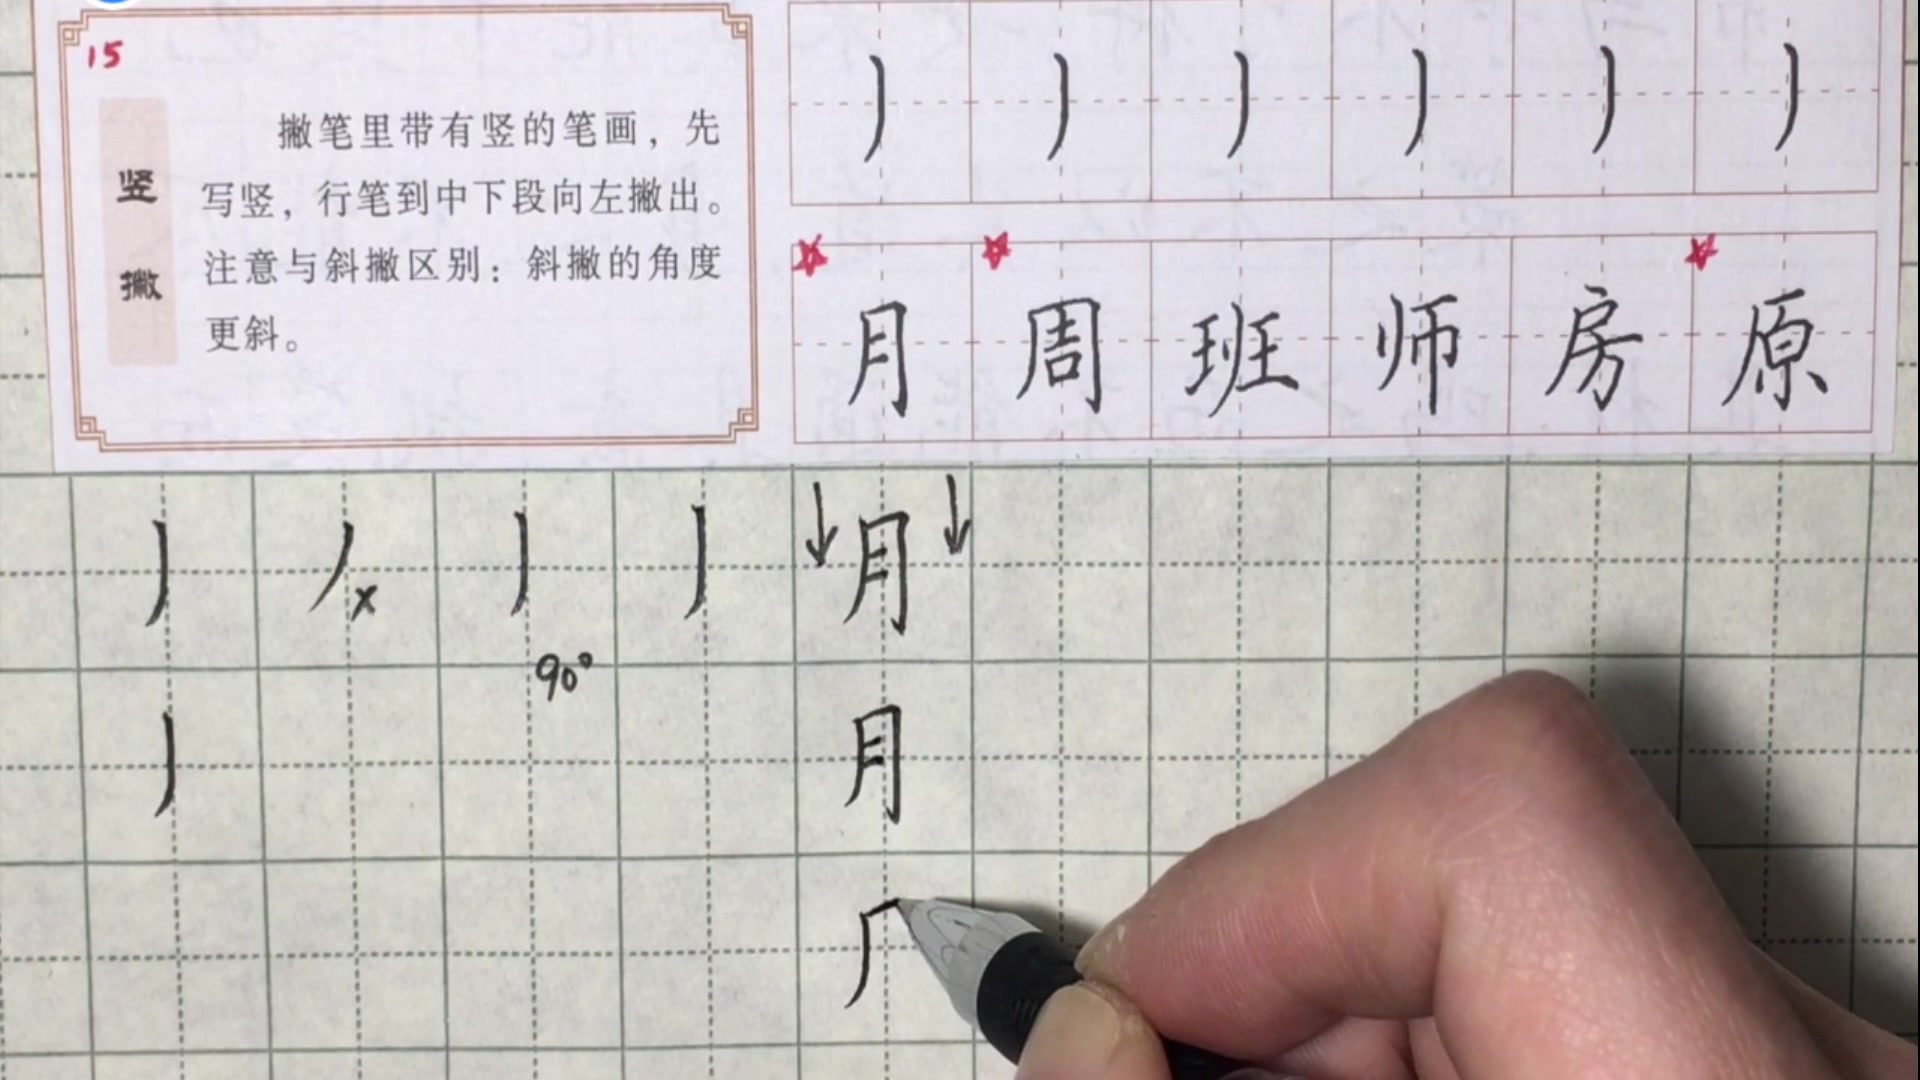 15
竖撇
撇笔里带有竖的笔画，先
写竖，行笔到中下段向左撇出。
注意与斜撇区别：斜撇的角度
更斜。
丿 丿 丿 丿 丿 丿
月 周 班 师 房 原
丿 丿 x 丿 丿 ↓ 月 ↓
90°
丿 月